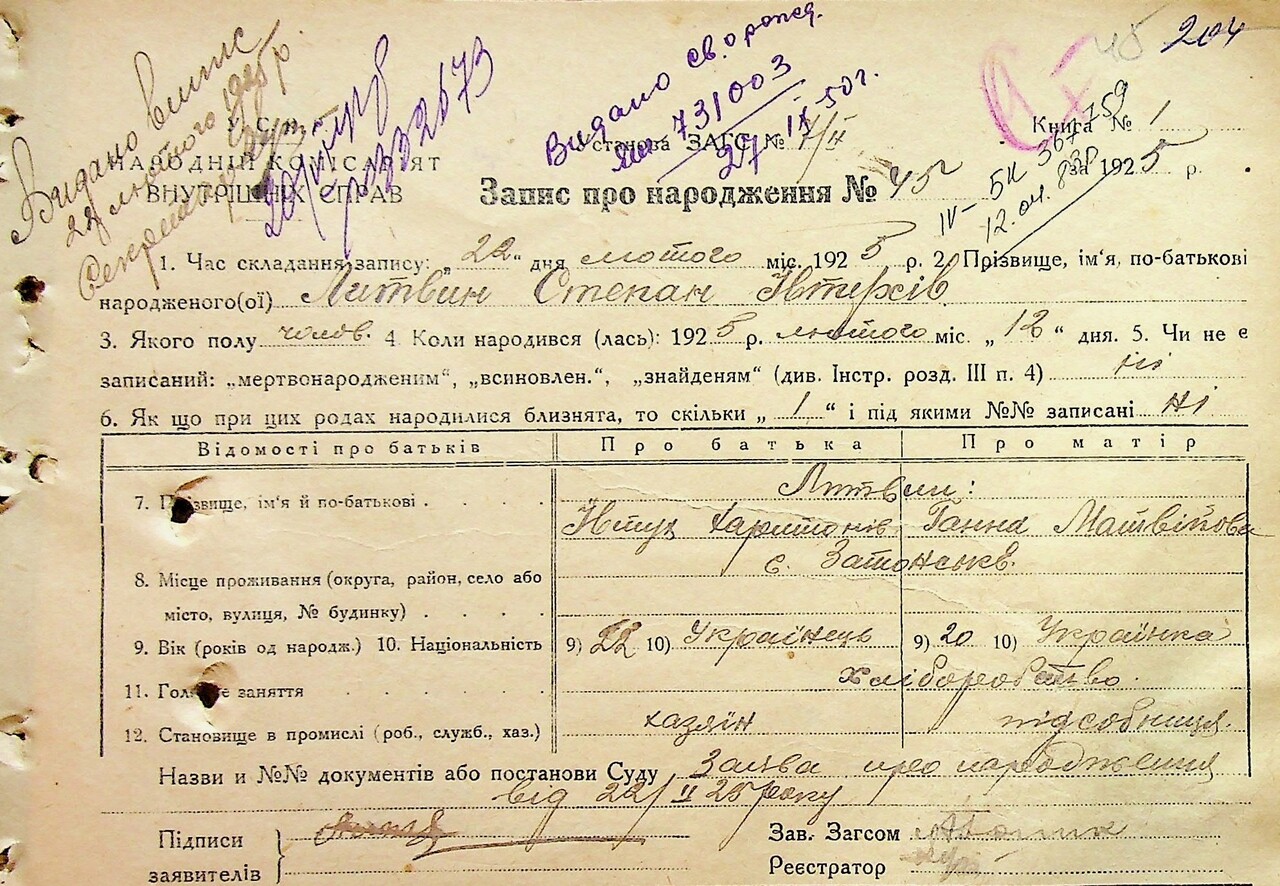 Видано виписс
22 лютого 1925 р.
Секретар
Видано св. о рожд.
731003
27/IX-50 г.
45 204
У.С.Р.Р.
НАРОДНІЙ КОМІСАРІЯТ
ВНУТРІШНІХ СПРАВ
Установа ЗАГС №
Книга № 1
за 1925 р.
IV-БК 367759
12.04.83р
Запис про народження № 45
1. Час складання запису: „22“ дня лютого міс. 1925 р. 2. Прізвище, ім'я, по-батькові
народженого(ої) Литвин Степан Євтухів
3. Якого полу чолов. 4. Коли народився (лась): 1925 р. лютого міс. „12“ дня. 5. Чи не є
записаний: „мертвонародженим“, „всиновлен.“, „знайденям“ (див. Інстр. розд. III п. 4) ні
6. Як що при цих родах народилися близнята, то скільки „1“ і під якими №№ записані ні
Відомості про батьків Про батька Про матір
7. Прізвище, ім'я й по-батькові . . . . Литвин:
Євтух Харитонів Ганна Матвійова
8. Місце проживання (округа, район, село або с. Затонське.
місто, вулиця, № будинку) . . . .
9. Вік (років од народж.) 10. Національність 9) 22 10) Українець 9) 20 10) Українка
11. Головне заняття . . . . . хліборобство.
12. Становище в промислі (роб., служб., хаз.) хазяїн підсобниця.
Назви и №№ документів або постанови Суду Заява про народження
від 22/II 25 року
Підписи
заявителів
Зав. Загсом
Реєстратор